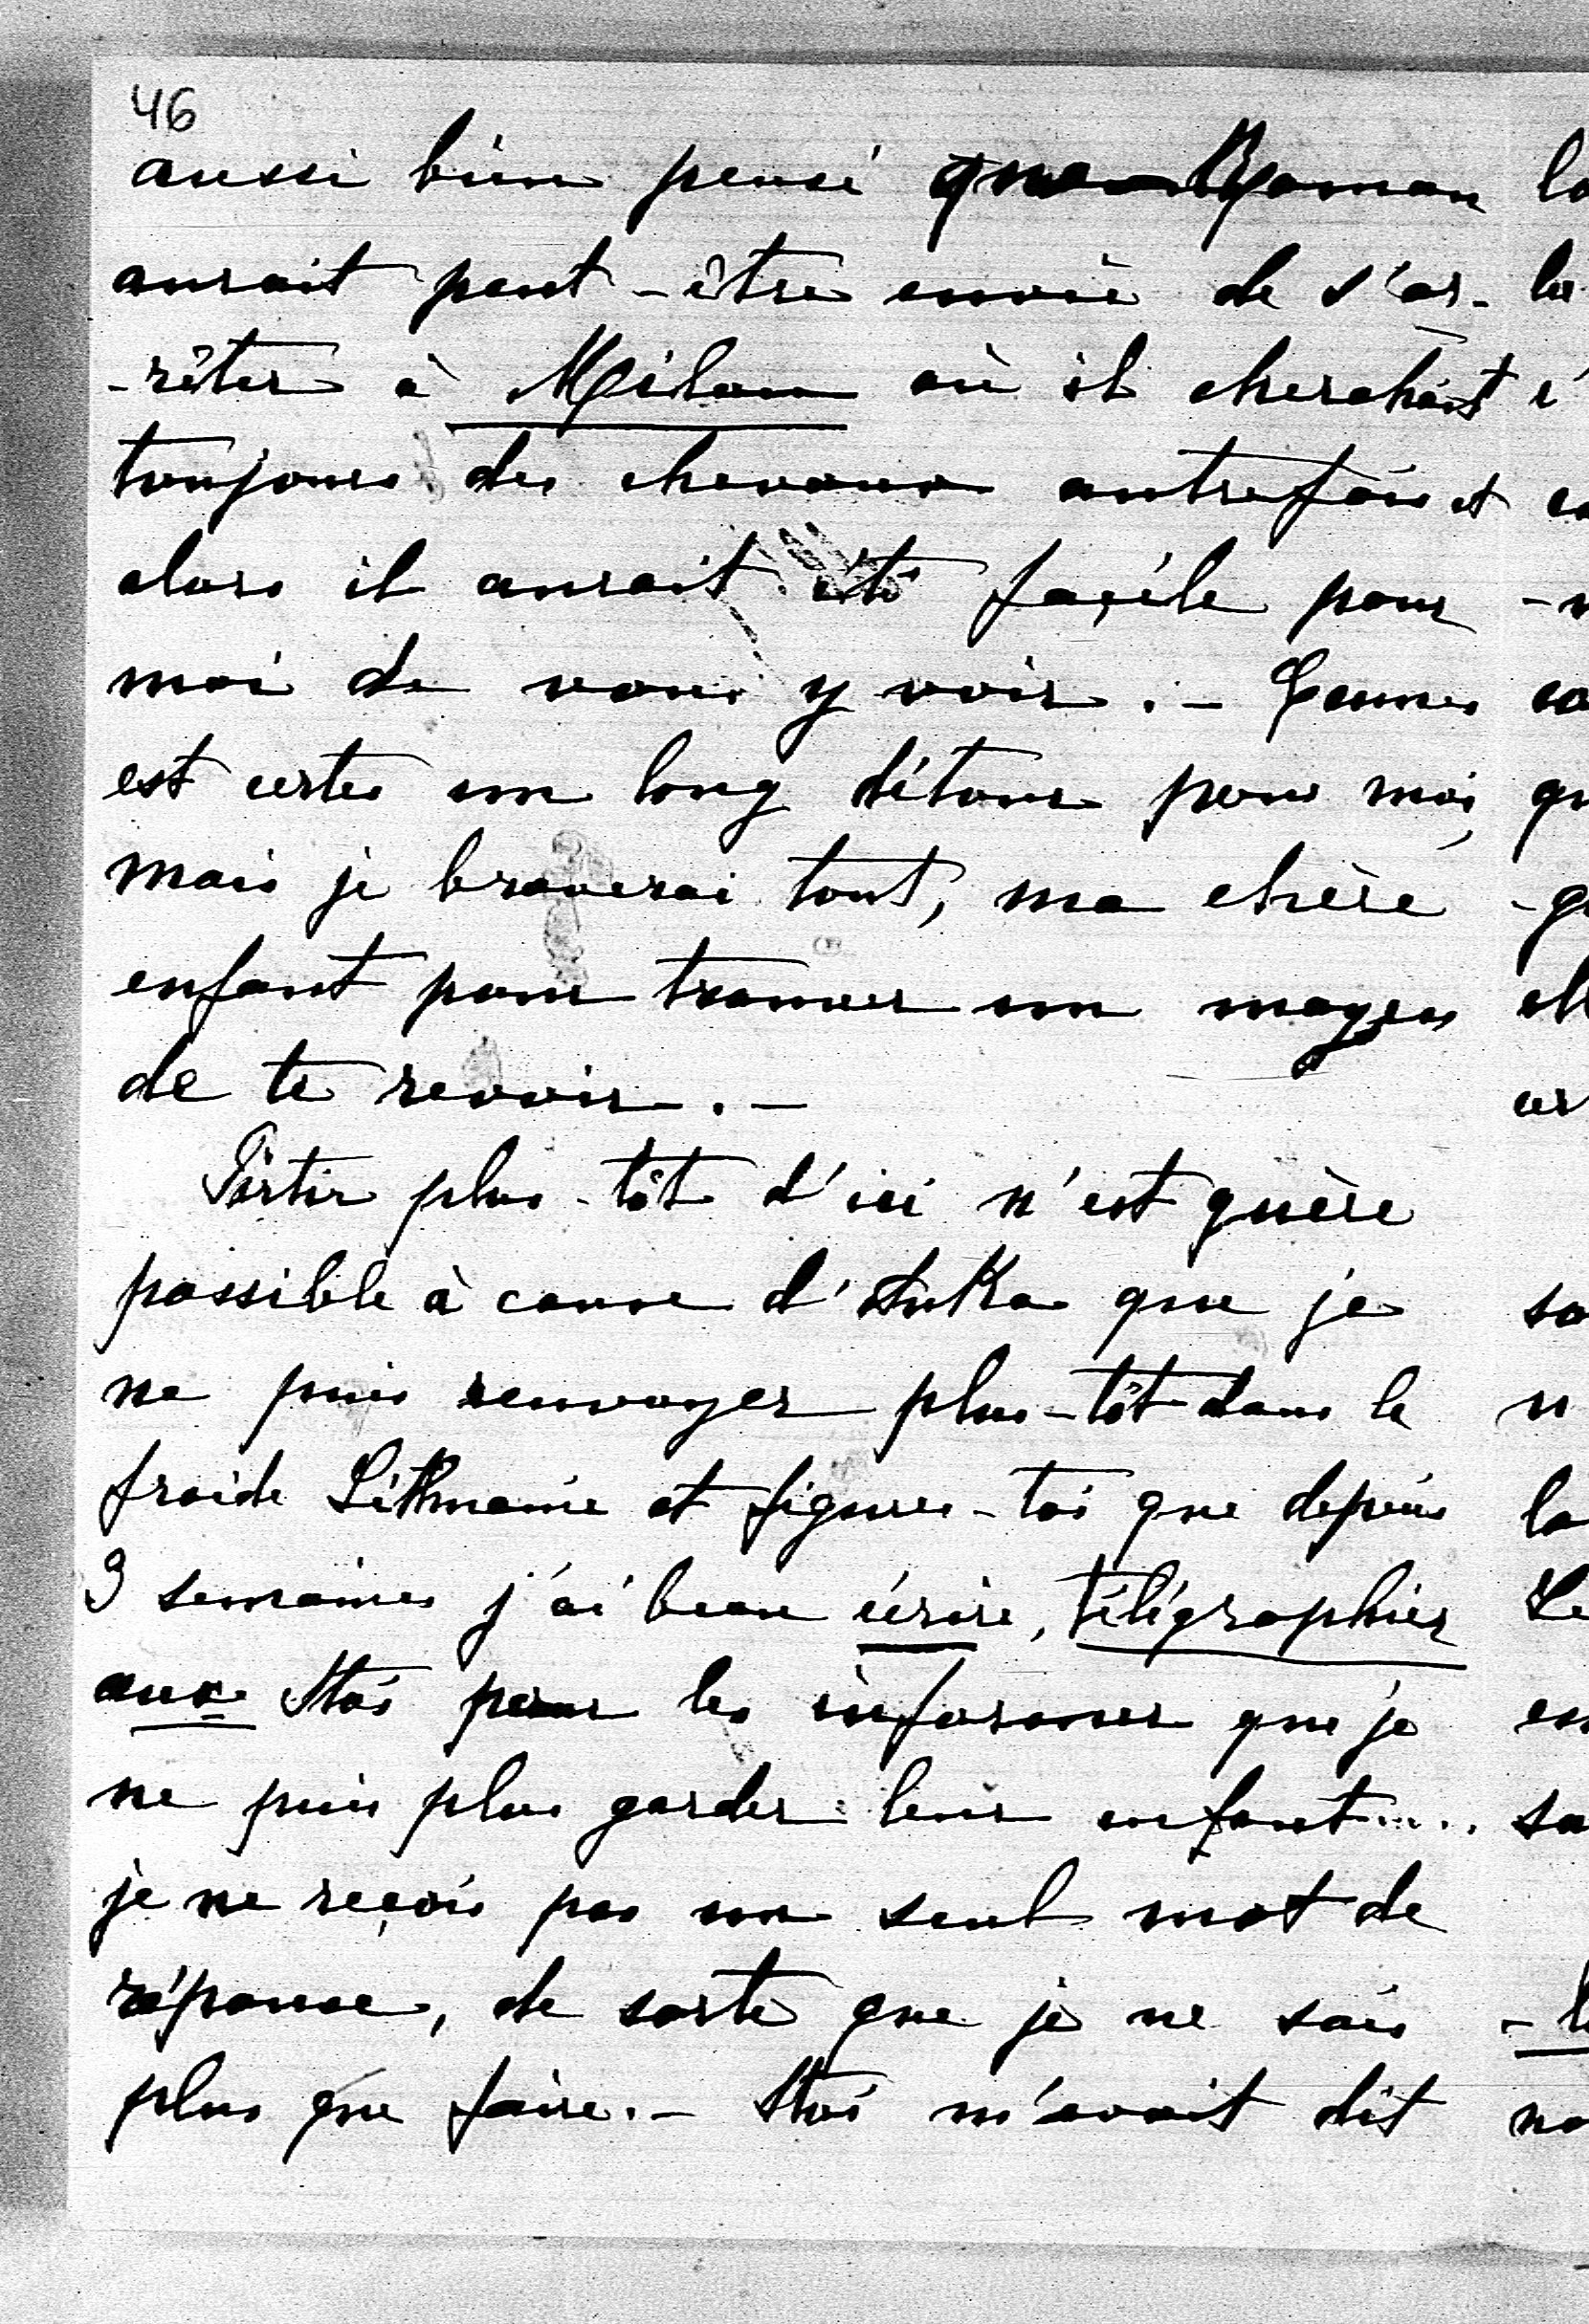 46
aussi bien pensé que Roman
aurait peut-être envie de s'ar-
-rêter à Milan où il cherchait
toujours des chevaux autrefois et
alors il aurait été façile pour
moi de vous y voir.- Cannes
est certes un long détour pour moi,
mais je braverai tout, ma chère
enfant pour trouver un moyen
de te revoir.-
Partir plus-tôt d'ici n'est guère
possible à cause d'Inka que je
ne puis renvoyer plus-tôt dans la
froide Lithuanie et figures-toi que depuis
3 semaines j'ai beau écrire, télégraphier
aux Stas pour les informer que je
ne puis plus garder leur enfant....
je ne reçois pas un seul mot de
réponse, de sorte que je ne sais
plus que faire.- Stas m'avait dit